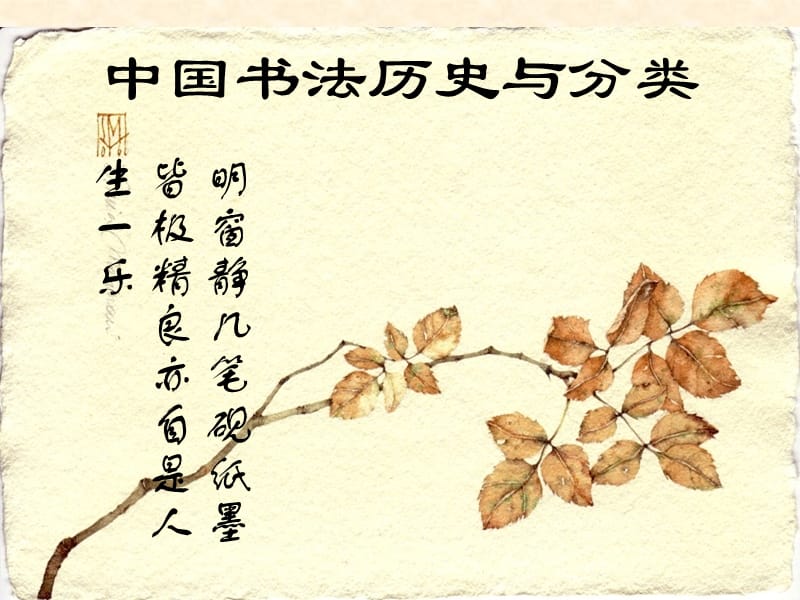 中国书法历史与分类
明窗静几笔砚纸墨
皆极精良亦自是人
生一乐